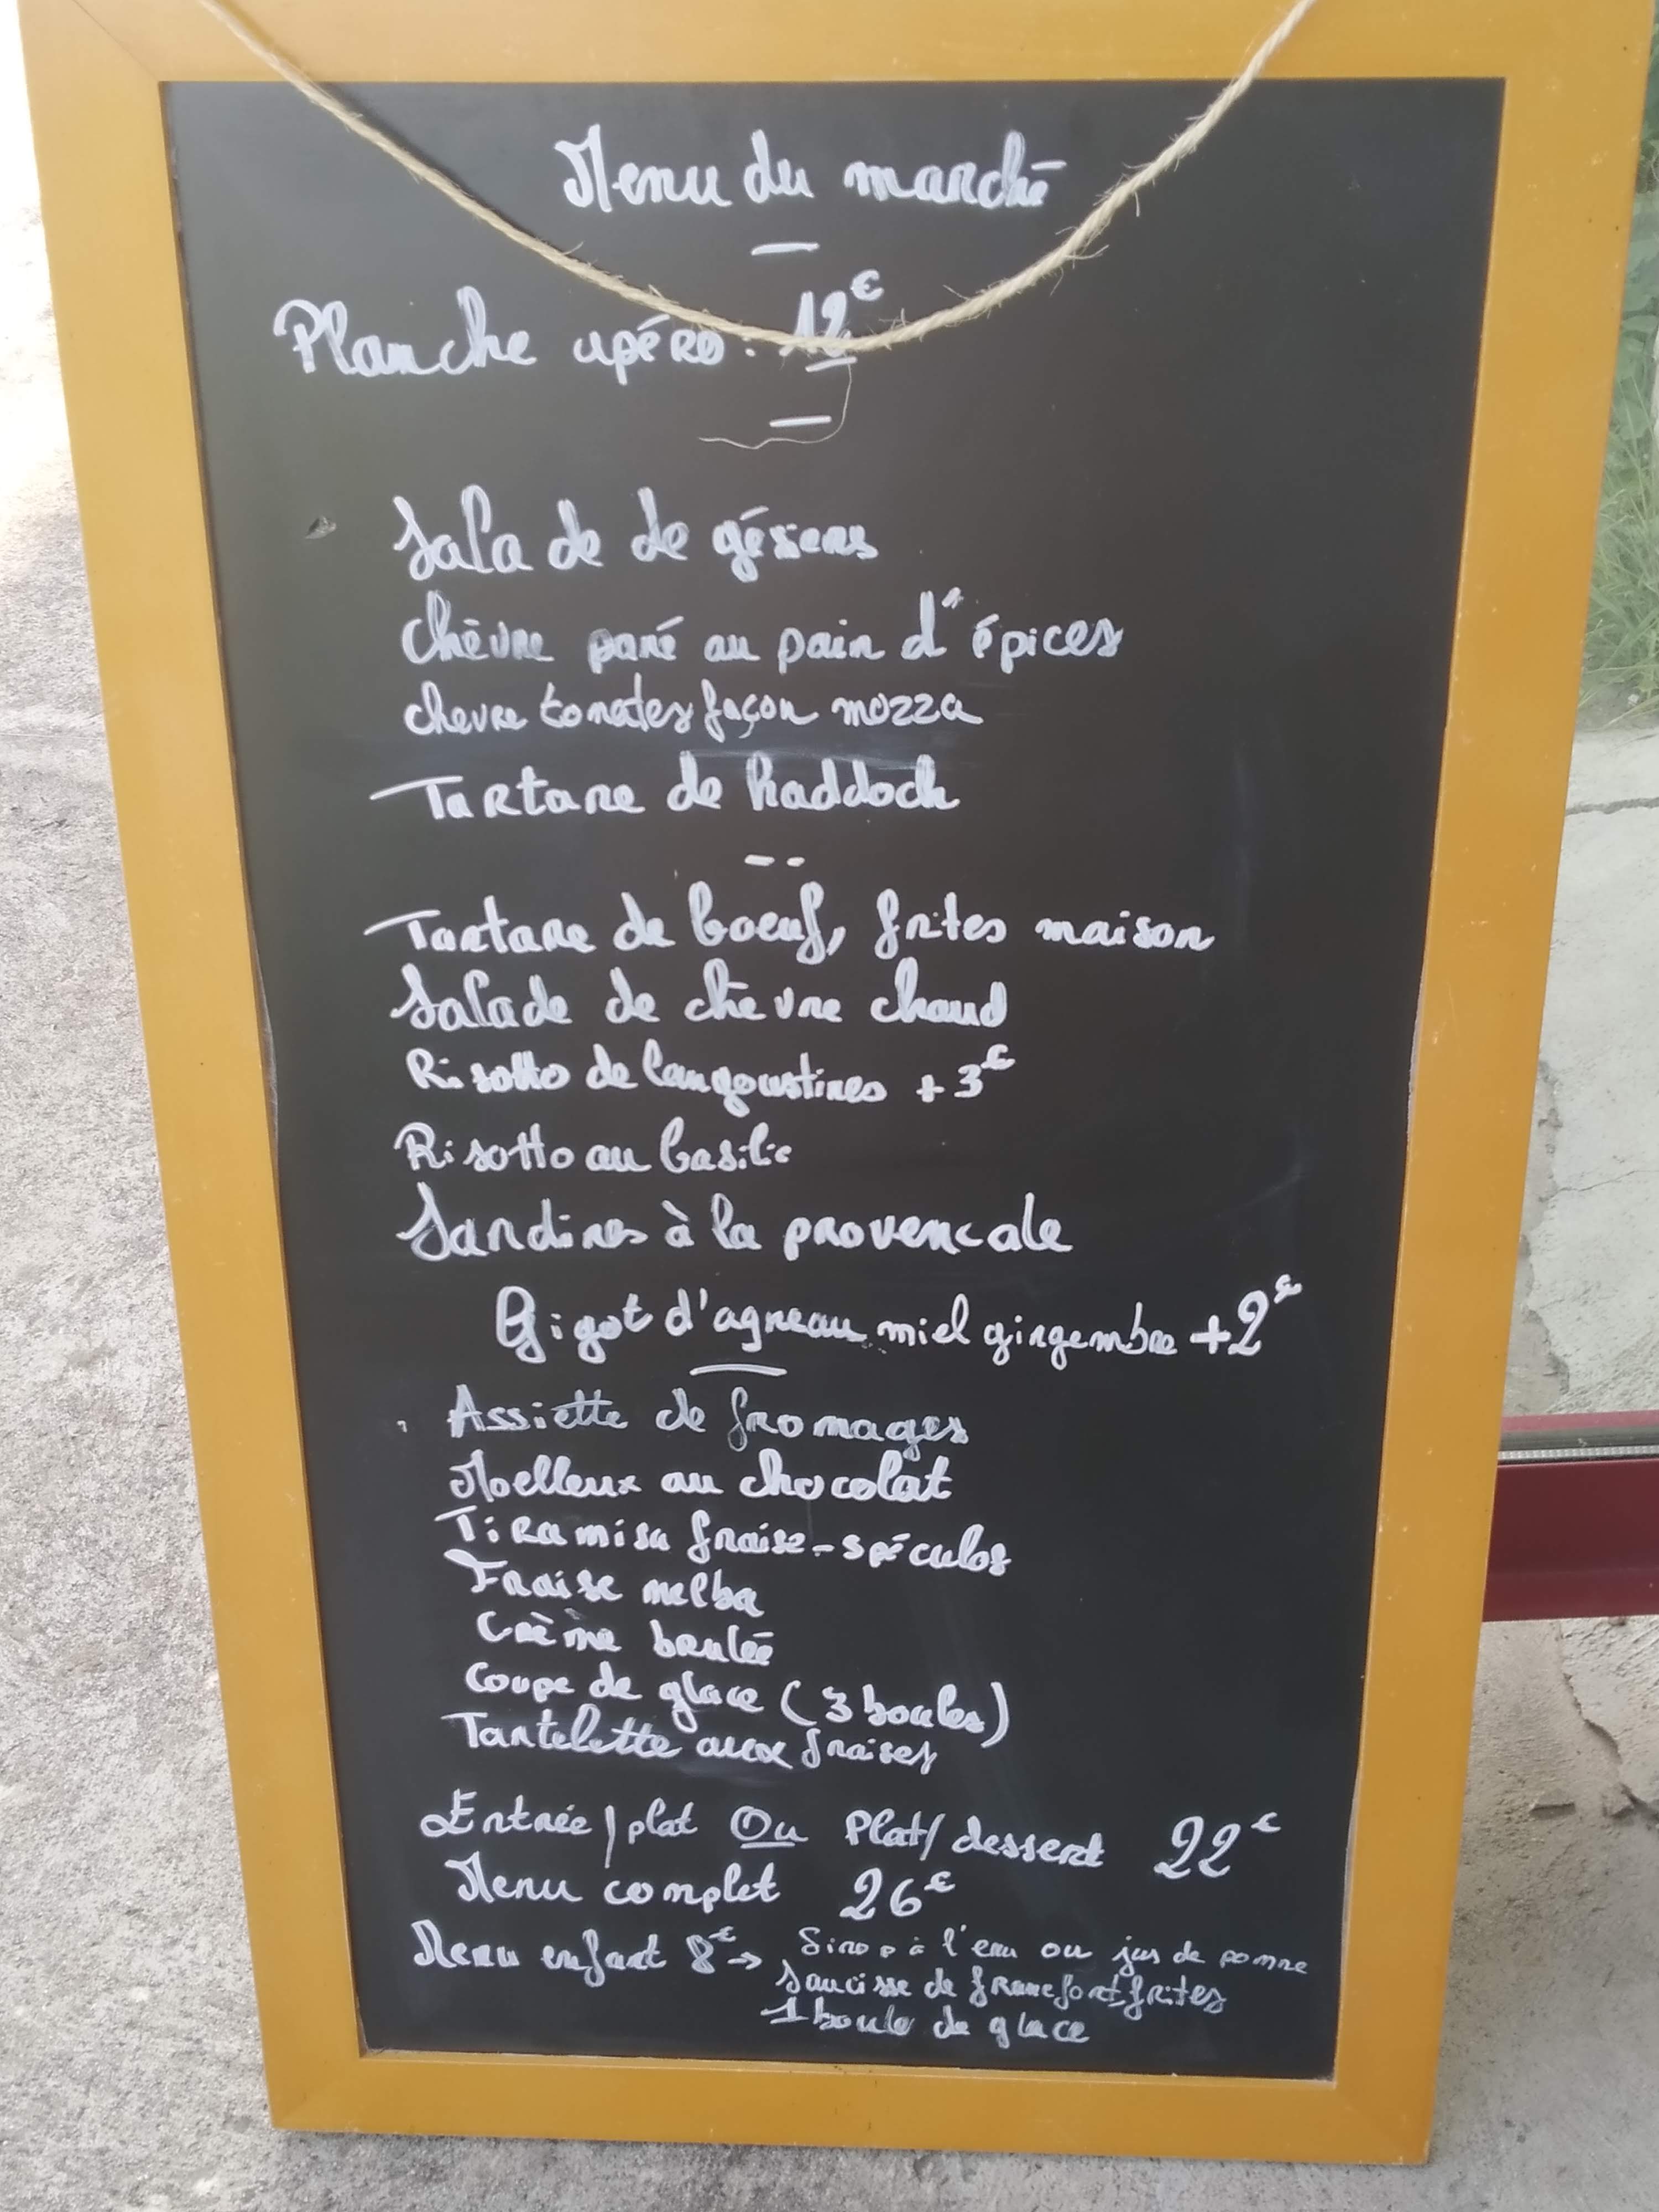 Menu du marché
Planche apéro : 12€
Salade de gésiers
Chèvre pané au pain d'épices
chevre tomates façon mozza
Tartare de haddock
Tartare de boeuf, frites maison
Salade de chèvre chaud
Risotto de langoustines +3€
Risotto au basilic
Sardines à la provencale
Gigot d'agneau miel gingembre +2€
Assiette de fromages
Moelleux au chocolat
Tiramisu fraise-spéculos
Fraise melba
Crème brulée
Coupe de glace (3 boules)
Tartelette aux fraises
Entrée/plat Ou Plat/dessert 22€
Menu complet 26€
Menu enfant 8€ → Sirop à l'eau ou jus de pomme
Saucisse de francfort, frites
1 boule de glace